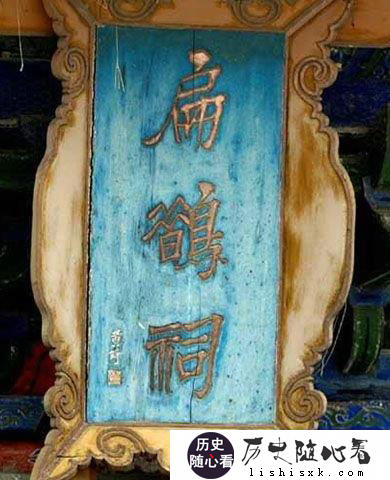 扁鵲祠
历史
随心看
历史随心看
lishisxk.com